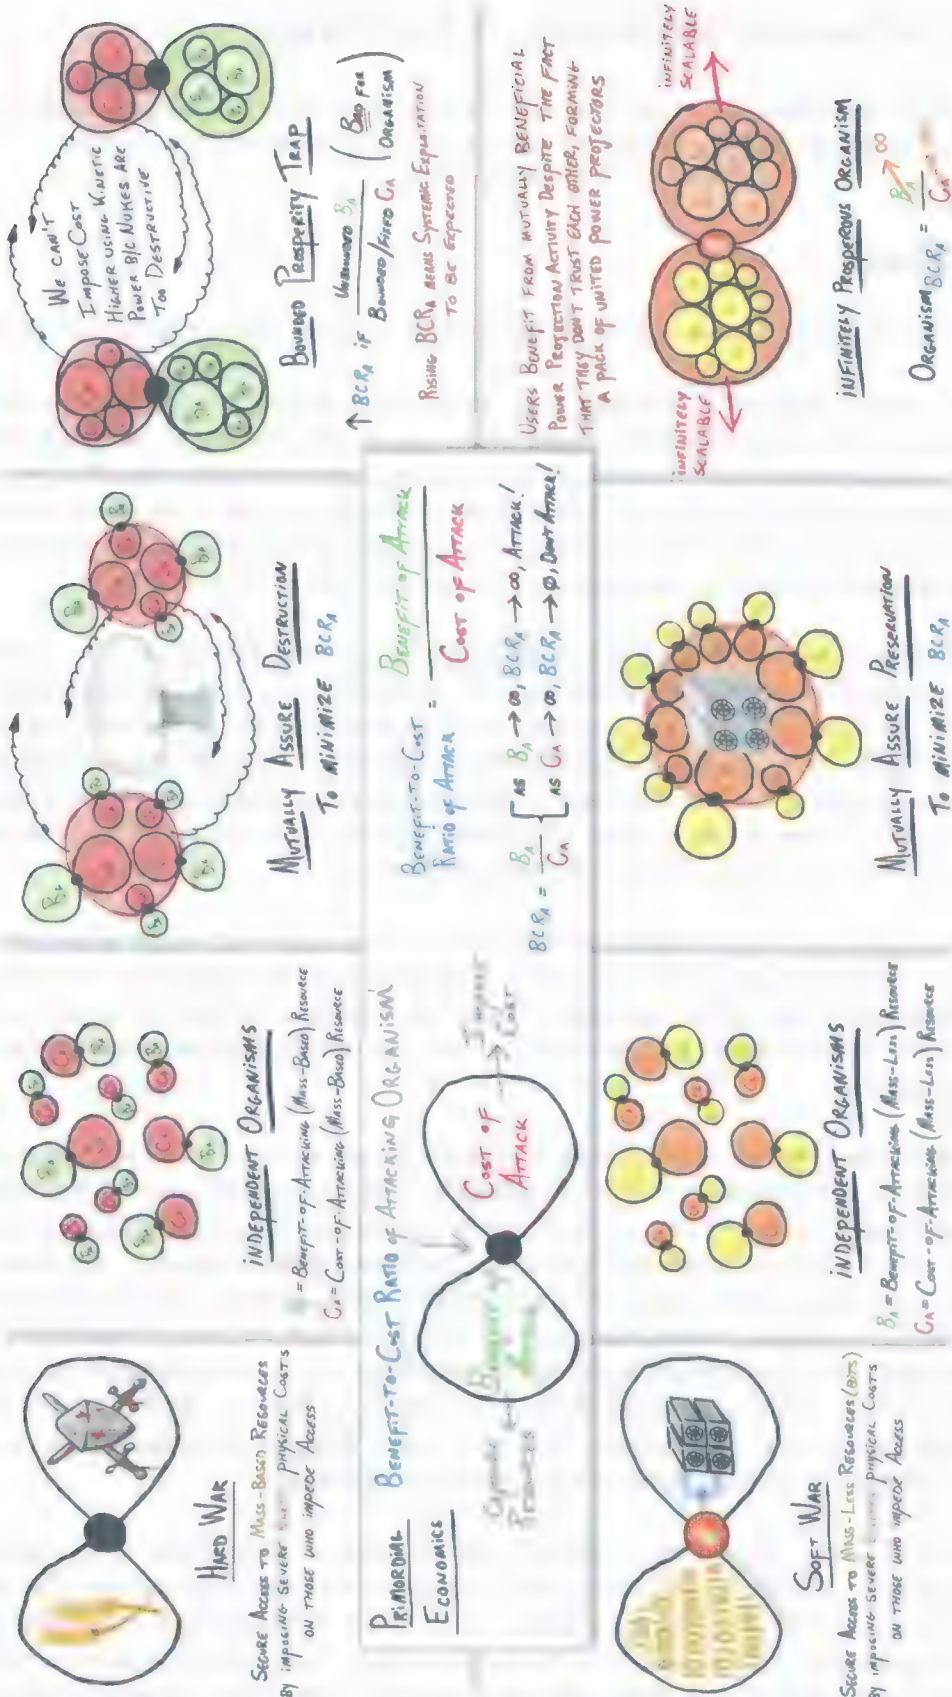 HARD WAR
SECURE ACCESS TO MASS-BASED RESOURCES
BY IMPOSING SEVERE PHYSICAL COSTS
ON THOSE WHO IMPEDE ACCESS
INDEPENDENT ORGANISMS
= BENEFIT-OF-ATTACKING (MASS-BASED) RESOURCE
CA = COST-OF-ATTACKING (MASS-BASED) RESOURCE
MUTUALLY ASSURE DESTRUCTION
TO MINIMIZE BCRA
WE CAN'T
IMPOSE COST
HIGHER USING KINETIC
POWER B/C NUKES ARE
TOO DESTRUCTIVE
BOUNDED PROSPERITY TRAP
↑ BCRA IF UNBOUNDED BA
BOUNDED/FIXED CA
(BAD FOR
ORGANISM)
RISING BCRA MEANS SYSTEMIC EXPLOITATION
TO BE EXPECTED
PRIMORDIAL
ECONOMICS
BENEFIT-TO-COST RATIO of ATTACKING ORGANISM
RESOURCES
BENEFIT of
COST OF
ATTACK
IMPOSE
COST
BENEFIT-TO-COST
RATIO of ATTACK
=
BENEFIT OF ATTACK
COST OF ATTACK
BCRA = BA
CA
AS BA → ∞, BCRA → ∞, ATTACK!
AS CA → ∞, BCRA → Ø, DON'T ATTACK!
SOFT WAR
SECURE ACCESS TO MASS-LESS RESOURCES (BITS)
BY IMPOSING SEVERE PHYSICAL COSTS
ON THOSE WHO IMPEDE ACCESS
INDEPENDENT ORGANISMS
BA = BENEFIT-OF-ATTACKING (MASS-LESS) RESOURCE
CA = COST-OF-ATTACKING (MASS-LESS) RESOURCE
MUTUALLY ASSURE PRESERVATION
TO MINIMIZE BCRA
USERS BENEFIT FROM MUTUALLY BENEFICIAL
POWER PROJECTION ACTIVITY DESPITE THE FACT
THAT THEY DON'T TRUST EACH OTHER, FORMING
A PACK OF UNITED POWER PROJECTORS
INFINITELY
SCALABLE
INFINITELY
SCALABLE
INFINITELY PROSPEROUS ORGANISM
ORGANISM BCRA = BA → ∞
CA